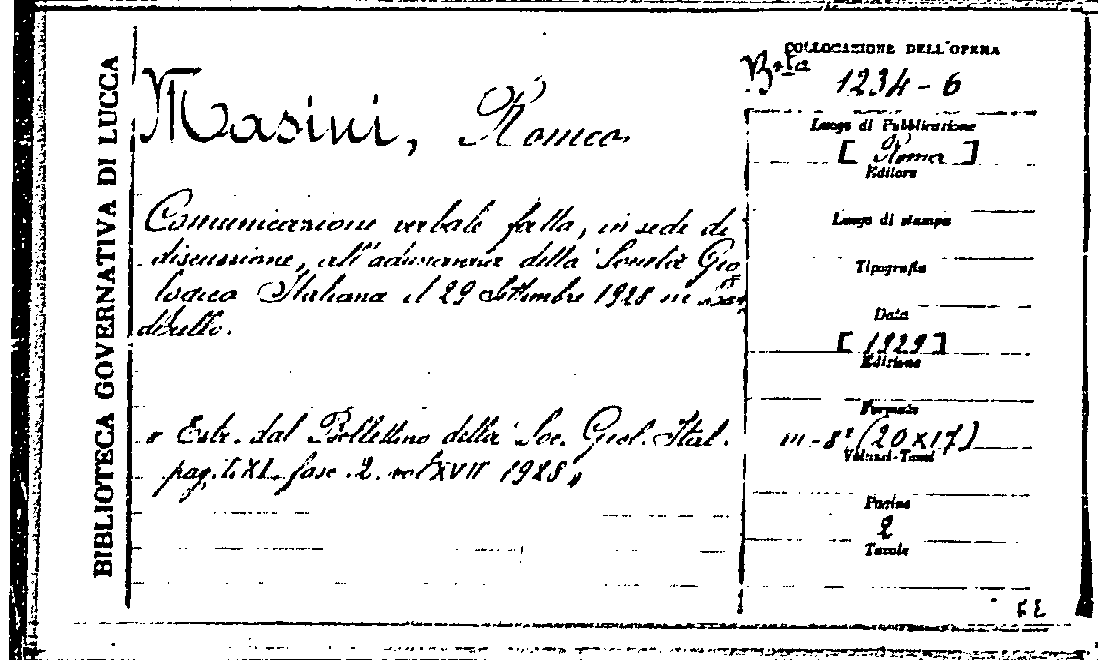 BIBLIOTECA GOVERNATIVA DI LUCCA
Masini, Romeo.
Comunicazione verbale fatta, in sede di
discussione, all'adunanza della Società Geo
logica Italiana il 29 Settembre 1928 in
» Estr. dal Bollettino della Soc. Geol. Ital.
pag. fasc. 2. vol XVII 1928 »
COLLOCAZIONE DELL'OPERA
B.sta 1234-6
Luogo di Pubblicazione
[ Roma ]
Editore
Luogo di stampa
Tipografia
Data
[ 1929 ]
Edizione
Formato
in-8° (20x17)
Volumi-Tomi
Pagine
2
Tavole